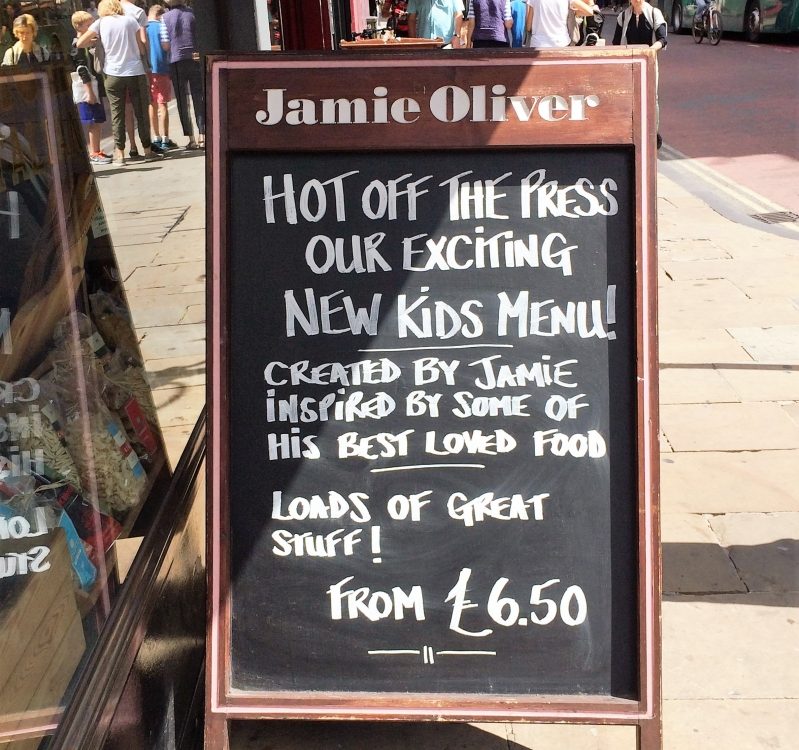 Jamie Oliver
HOT OFF THE PRESS
OUR EXCITING
NEW KIDS MENU!
CREATED BY JAMIE
INSPIRED BY SOME OF
HIS BEST LOVED FOOD
LOADS OF GREAT
STUFF!
FROM £6.50